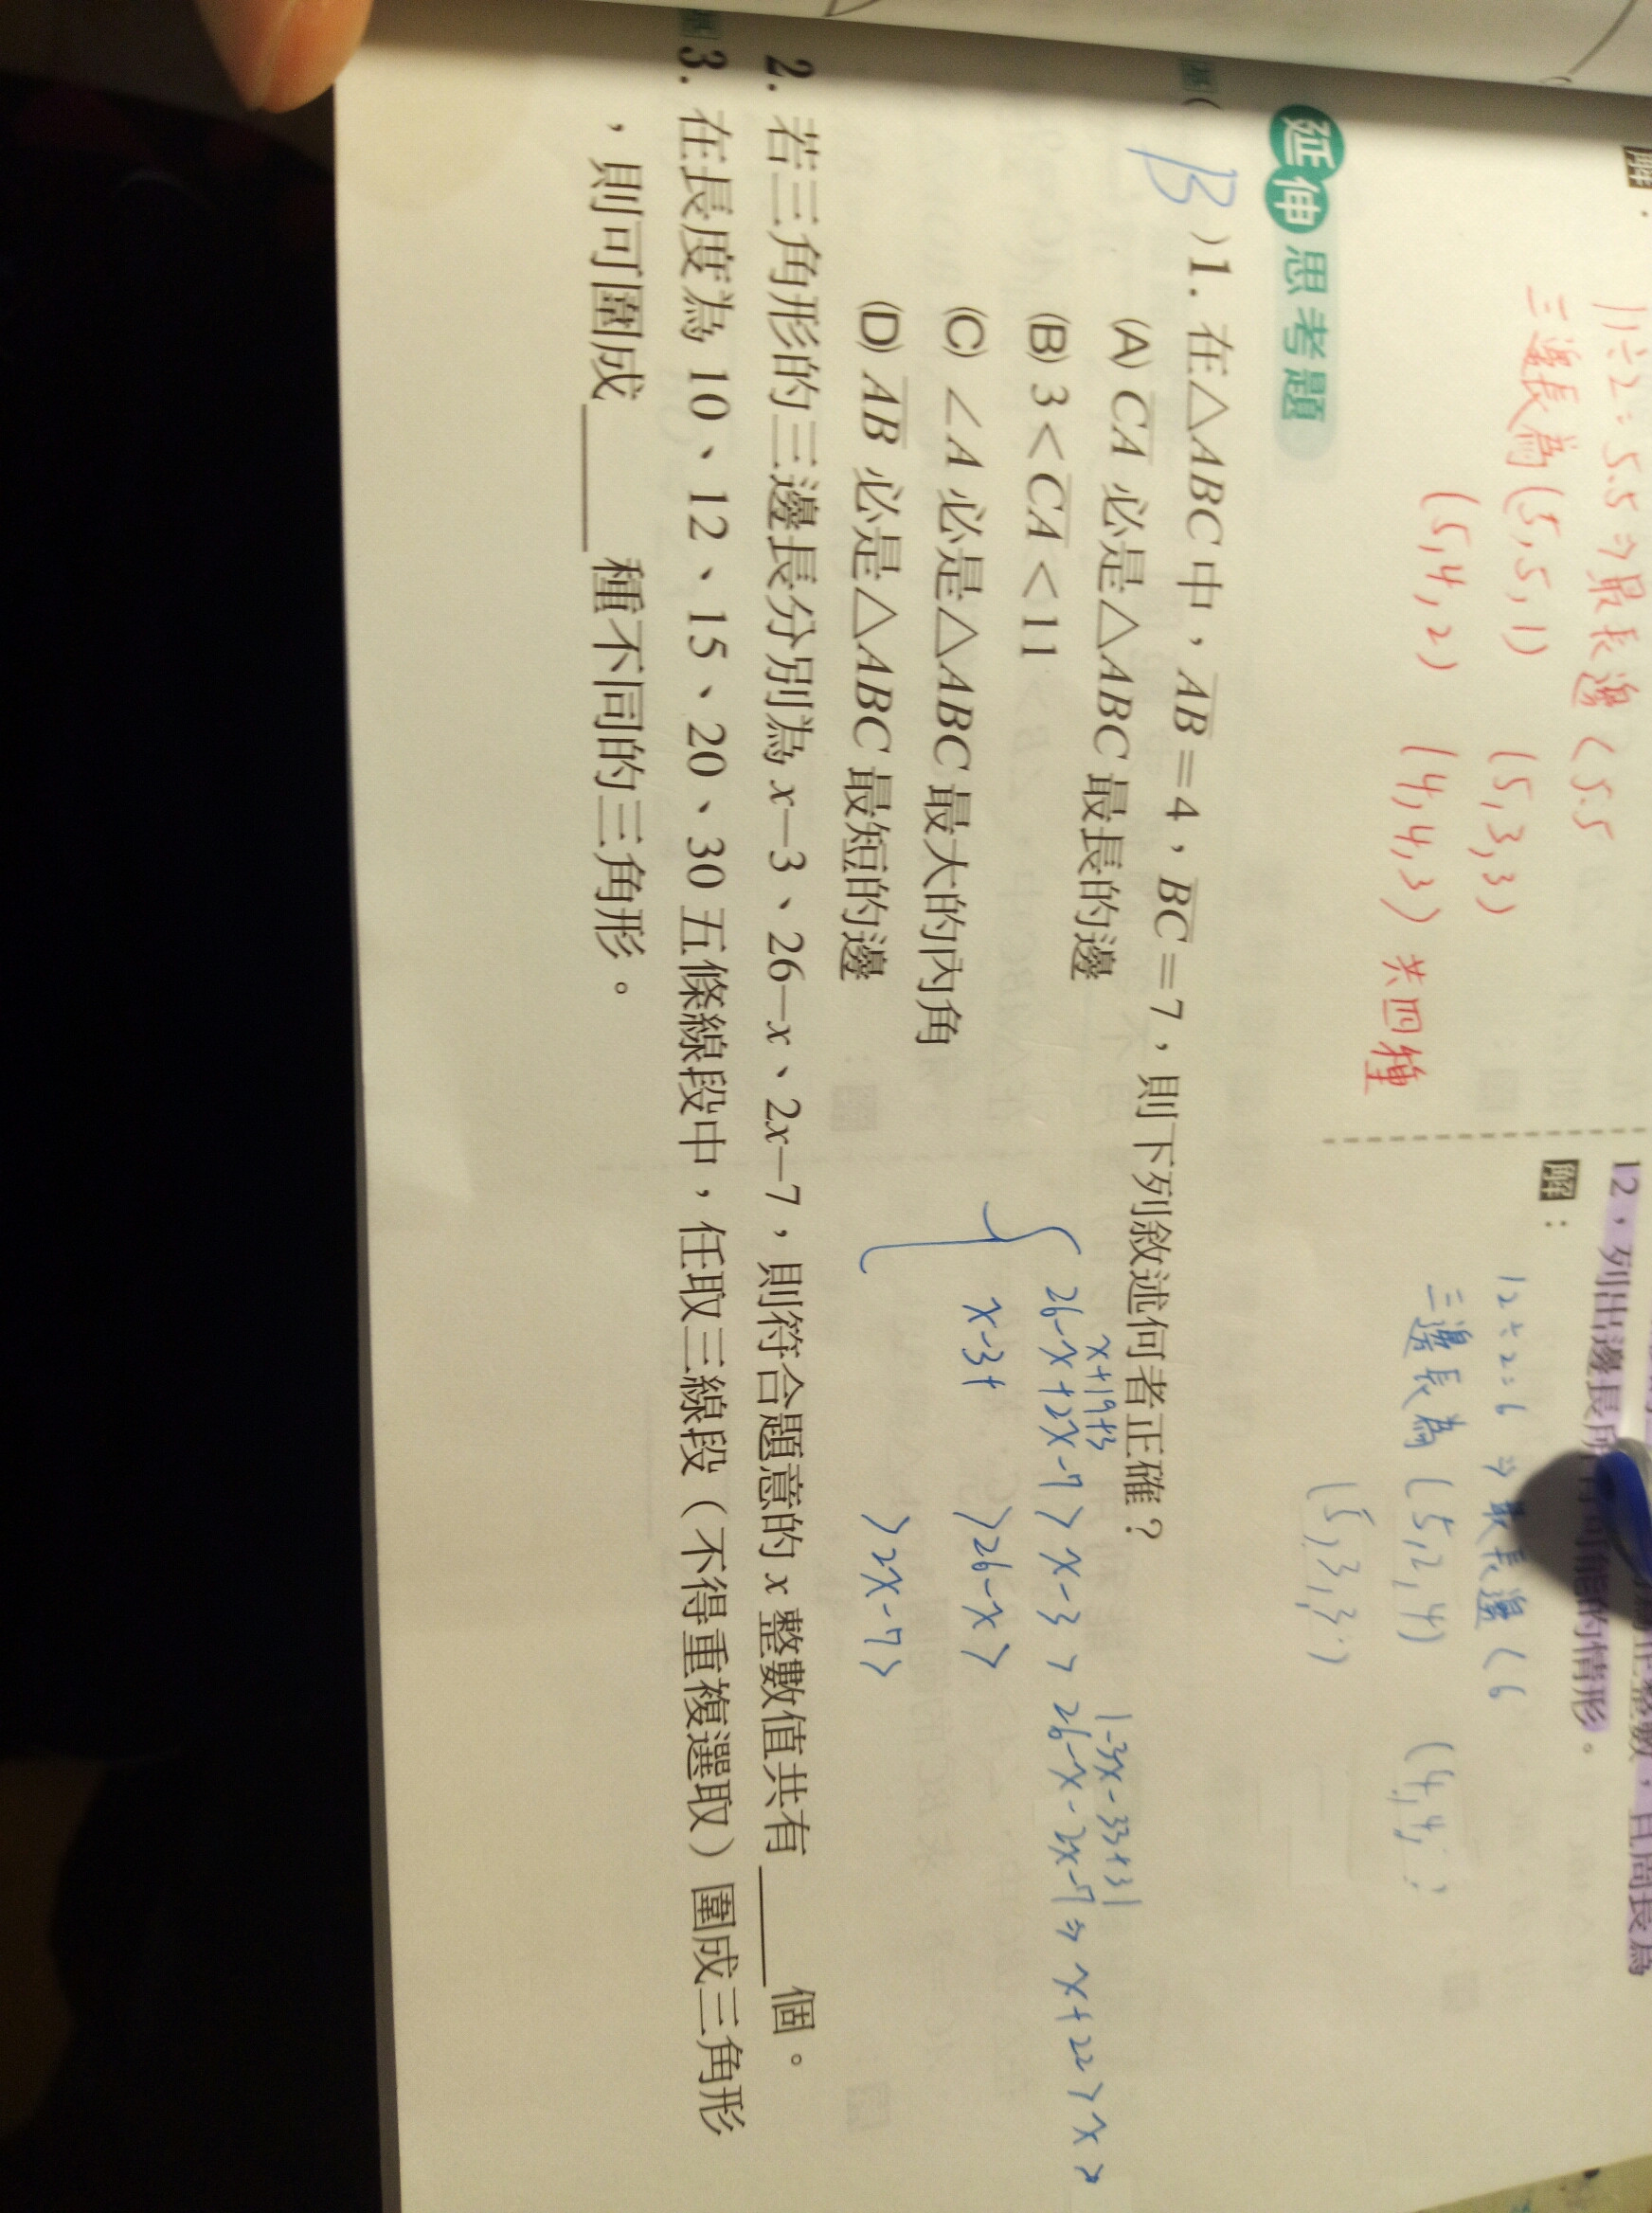 解：
11÷2=5.5⇒最長邊<5.5
三邊長為(5,5,1) (5,3,3)
(5,4,2) (4,4,3) 共四種
12，列出邊長所有可能的情形。
解：
12÷2=6 ⇒最長邊<6
三邊長為(5,2,4) (4,4,
(5,3,3)
延伸思考題
(B)1. 在△ABC中，AB=4，BC=7，則下列敘述何者正確？
(A) CA 必是△ABC最長的邊
(B) 3<CA<11
(C) ∠A 必是△ABC最大的內角
(D) AB 必是△ABC最短的邊
x+19+3
26-x+2x-7>x-3>26-x-2x-7⇒x+22>x>
x-3+ >26-x>
>2x-7>
2. 若三角形的三邊長分別為 x－3、26－x、2x－7，則符合題意的 x 整數值共有____個。
3. 在長度為 10、12、15、20、30 五條線段中，任取三線段（不得重複選取）圍成三角形
，則可圍成____種不同的三角形。